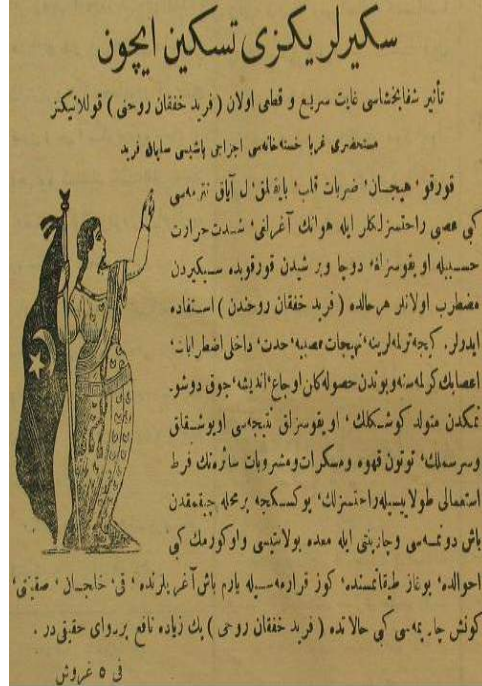 سكيرلريكزى تسكين ايچون
تأثير شفابخشاسى غايت سريع و قطعى اولان ( فريد خفقان روحى ) قوللانيكز
مستحضرى غربا خسته خانه‌سى اجزاجى باشيسى سابق فريد
قورقو، هيجان، ضربات قلب، بايغنلق، ال آياق تتره‌مه‌سى
كبى عصبى راحتسزلكلر ايله هوانك آغرلغى، شدت حرارت
حسبيله اويقوسزلق، دوچار وبر شيدن قورقوبده سكيردن
مضطرب اولانلر هر حالده ( فريد خفقان روحندن ) استفاده
ايدرلر. كيجه ترله‌ملرينه، تهيجات عصبيه، حدت، داخلى اضطرابات،
اعصابك كرلمه‌سنه وبوندن حصوله كلن اوجاع، انديشه، چوق دوشو.
نمكدن متولد كوشكلك، اويقوسزلق نتيجه‌سى اويوشقلق
وسرسملك، توتون قهوه ومسكرات ومشروبات سائره‌نك فرط
استعمالى طولاييسيله راحتسزلك، يوكسكجه بر محله چيقمقدن
باش دونمه‌سى وچارپنتى ايله معده بولانتيسى واوكورمك كبى
احوالده، بوغاز طيقانمسنده، كوز قرارمه‌سيله يارم باش آغريلرنده، قى، خلجان، صقنتى،
كونش چارپمه‌سى كبى حالاتده ( فريد خفقان روحى ) پك زياده نافع بر دواى حقيقى‌در .
فى ٥ غروش